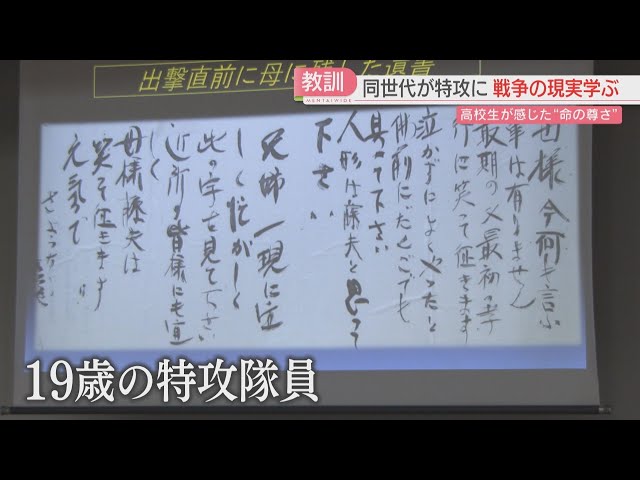 出撃直前に母に残した遺書
教訓
MENTAIWIDE
同世代が特攻に 戦争の現実学ぶ
高校生が感じた“命の尊さ”
母様今何も言ふ
事は有りません
最期の 最初の孝
行に笑って征きます
泣かずによくやったと
佛前にだんごでも
具へて下さい
人形は藤夫と思って
下さい
兄姉一現に宜
しく忙がしく
此の字を見て下さい
近所の皆様にも宜
しく
母様藤夫は
笑って征きます
元気で
19歳の特攻隊員